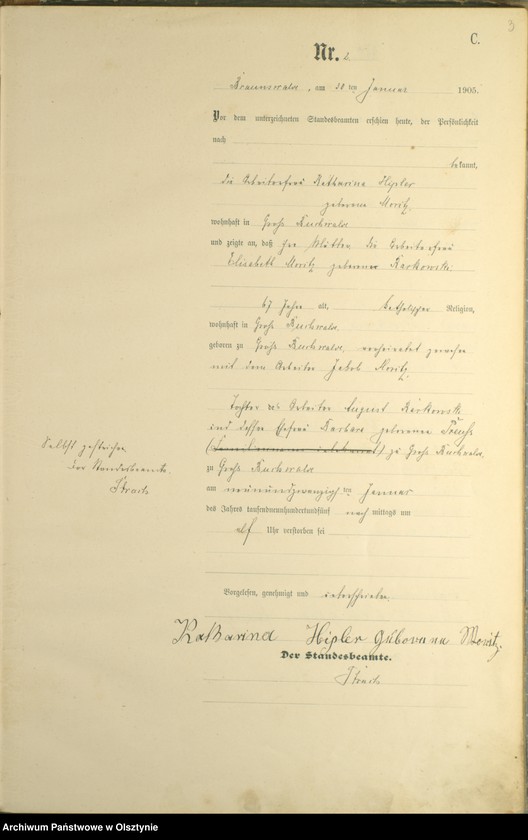 3
C.
Nr. 2
Braunswalde, am 30 ten Januar 1905.
Vor dem unterzeichneten Standesbeamten erschien heute, der Persönlichkeit
nach
bekannt,
die Arbeiterfrau Katharina Hipler
geborene Moritz,
wohnhaft in Groß
und zeigte an, daß ihre Mutter die Arbeiterfrau
Elisabeth Moritz geborene
67 Jahre alt, katholischer Religion,
wohnhaft in Groß
geboren zu Groß verheiratet gewesen
mit dem Arbeiter Jakob Moritz
Tochter des Arbeiter August
und dessen Ehefrau Barbara geborene
zu Groß
zu Groß
am neunundzwanzigsten Januar
des Jahres tausendneunhundertundfünf nach mittags um
elf Uhr verstorben sei
Selbst gestrichen
der Standesbeamte.
Vorgelesen, genehmigt und unterschrieben
Katharina Hipler Gebovene Moritz.
Der Standesbeamte.
Archiwum Państwowe w Olsztynie